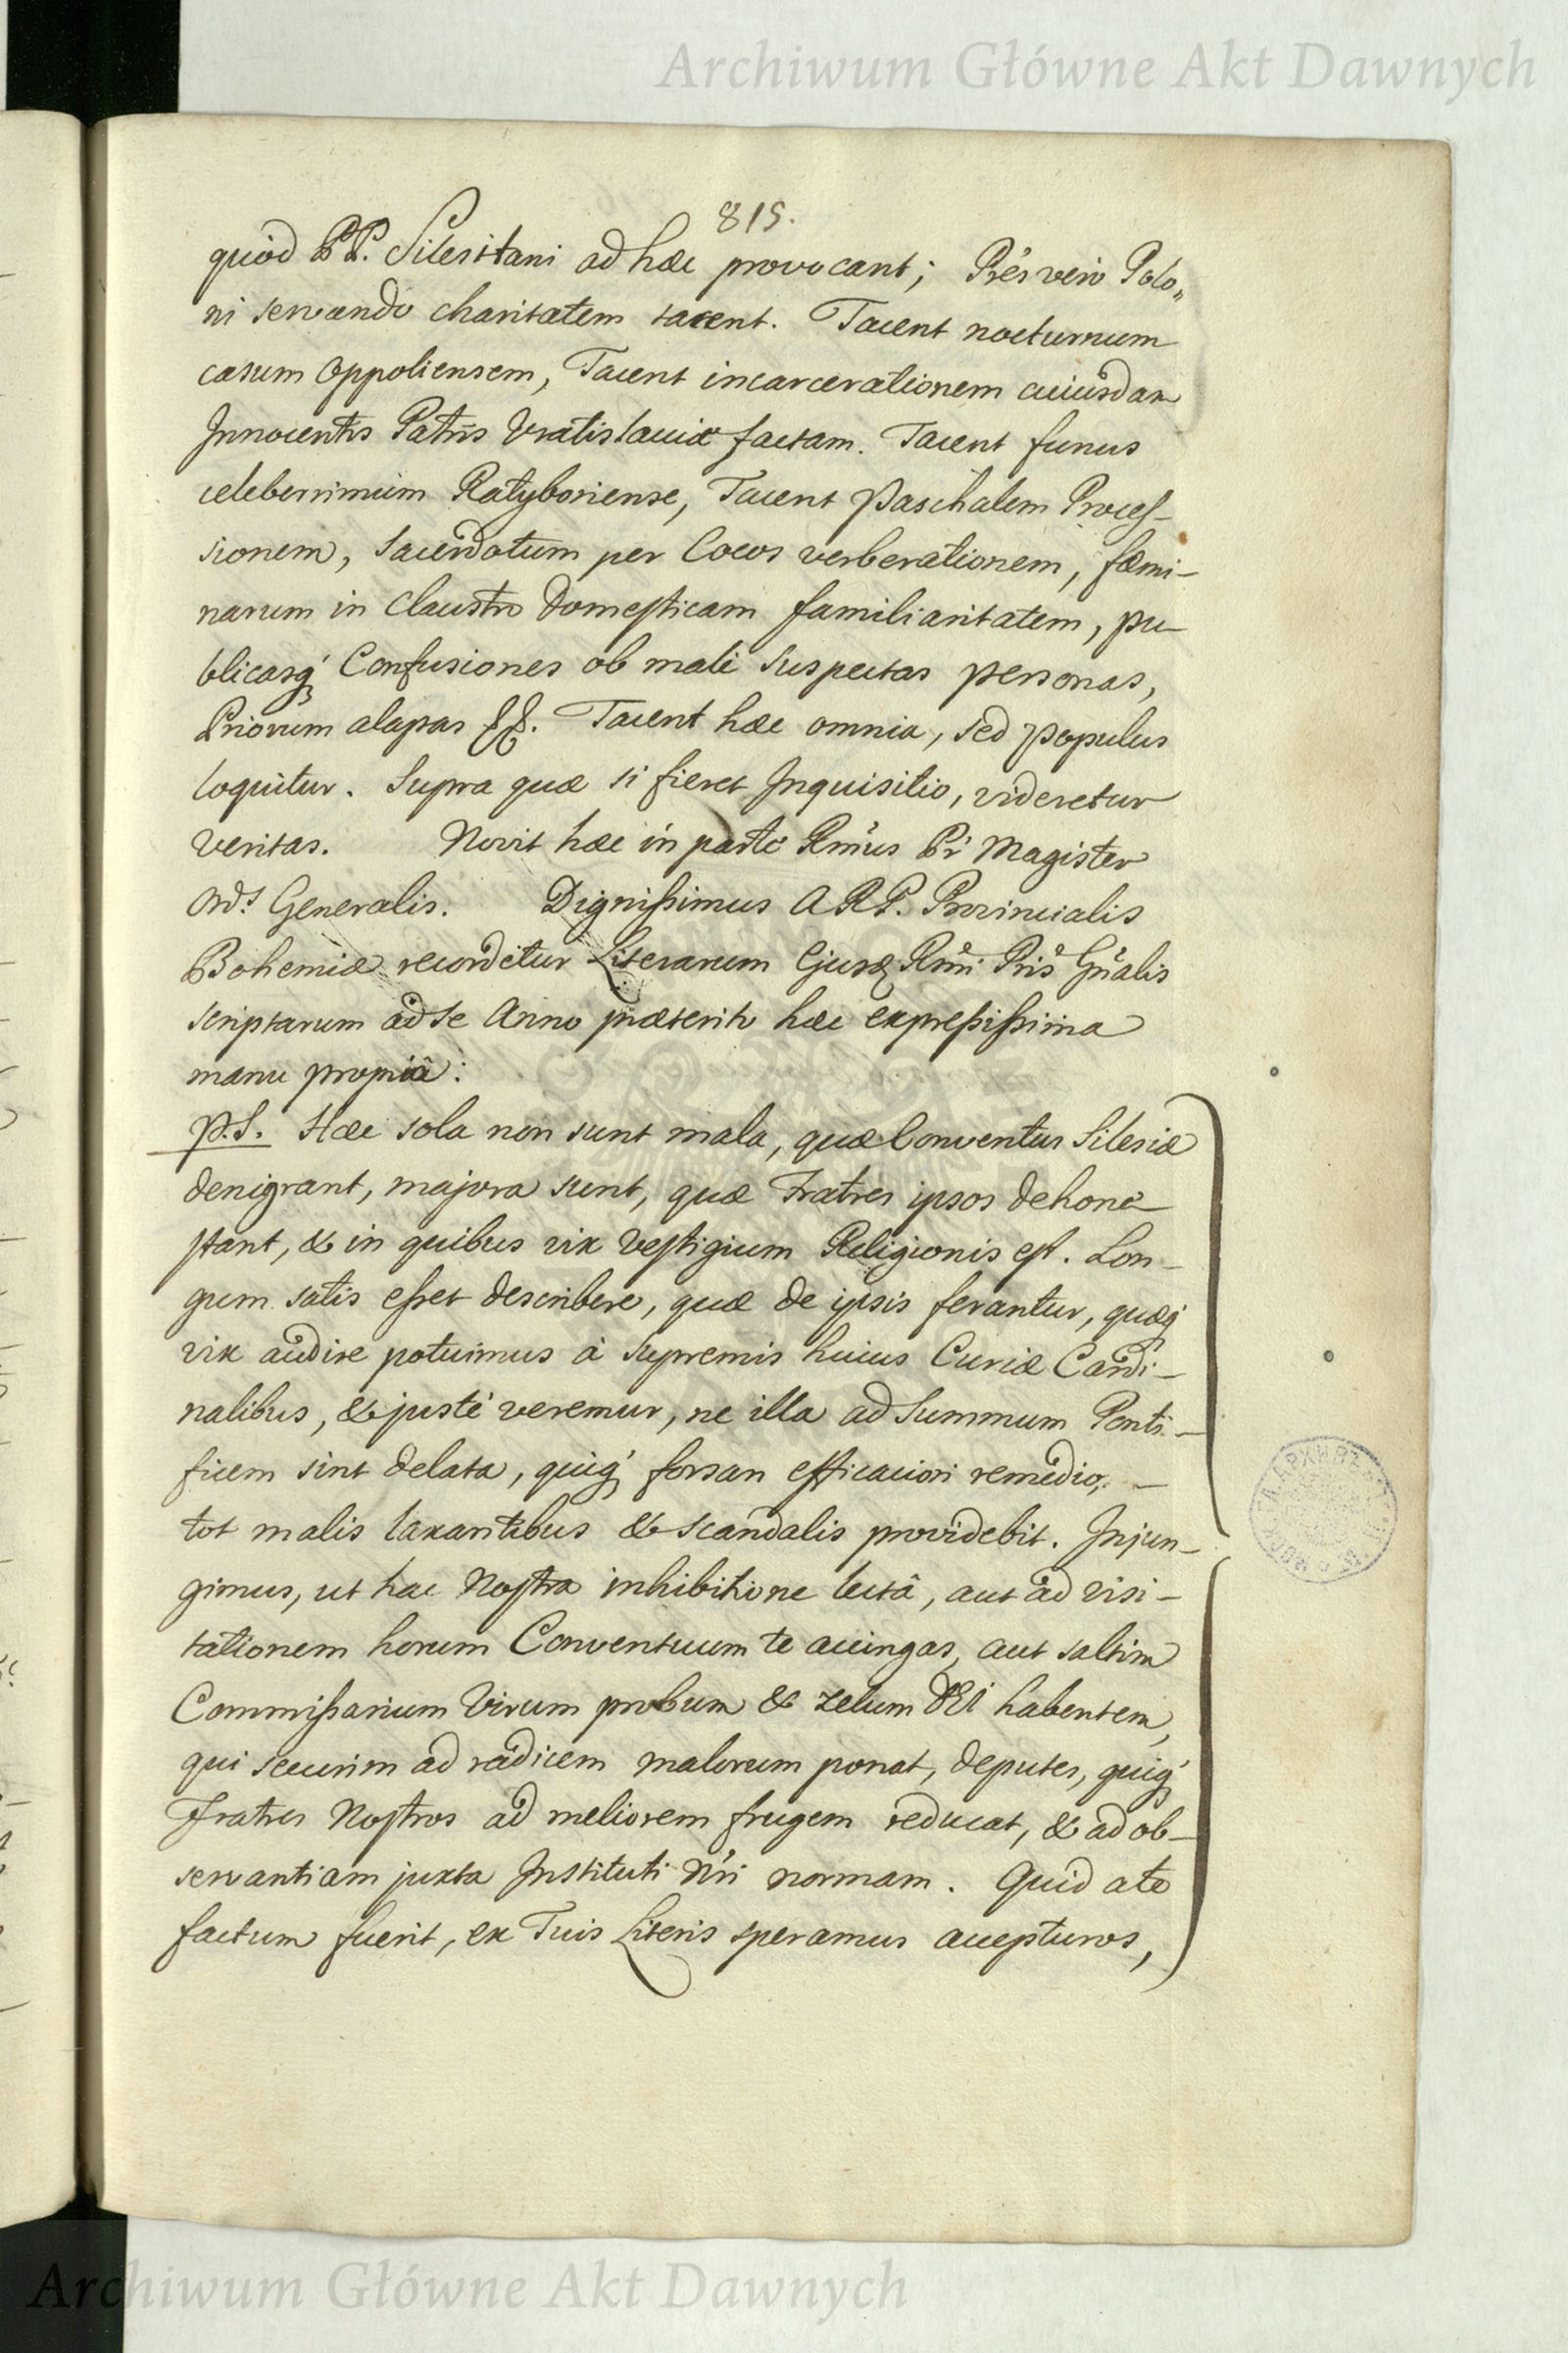 Archiwum Główne Akt Dawnych
815.
quòd PP. Silesitani ad hæc provocant; Prēs verò Polo„
ni servando charitatem tacent. Tacent nocturnum
casum Oppoliensem, Tacent incarcerationem cuiusdam
Innocentis Patris Vratislaviæ factam. Tacent funus
celeberrimum Ratyboriense, Tacent Paschalem Proces-
sionem, Sacerdotum per Cocos verberationem, fæmi-
narum in Claustro domesticam familiaritatem, pu-
blicasq́ Confusiones ob malè suspectas personas,
Priorum alapas &&. Tacent hæc omnia, sed populus
loquitur. Supra quæ si fieret Inquisitio, videretur
veritas. Novit hæc in parte Rm̄us Pr̄ Magister
Ordˢ. Generalis. Dignissimus A.R.P. Provincialis
Bohemiæ recordetur Literarum Ejusd Rm̄i Pris Gn̄alis
scriptarum ad se Anno præterito hæc expressissima
manu propriâ:
P.S. Hæc sola non sunt mala, quæ Conventus Silesiæ
denigrant, majora sunt, quæ Fratres ipsos dehone-
stant, & in quibus vix Vestigium Religionis est. Lon-
gum satis esset describere, quæ de ipsis ferantur, quæq́
vix audire potuimus à supremis huius Curiæ Cardi-
nalibus, & justè veremur, ne illa ad Summum Ponti-
ficem sint delata, quiq́ forsan efficaciori remedio, -
tot malis laxantibus & scandalis providebit. Injun-
gimus, ut hac Nostra inhibitione lectâ, aut ad visi-
tationem horum Conventuum te accingas, aut saltim
Commissarium Virum probum & zelum DEI habentem,
qui securim ad radicem malorum ponat, deputes, quiq́
Fratres Nostros ad meliorem frugem reducat, & ad ob-
servantiam juxta Instituti Nr̄i normam. Quid a te
factum fuerit, ex Tuis Literis speramus accepturos,
Archiwum Główne Akt Dawnych